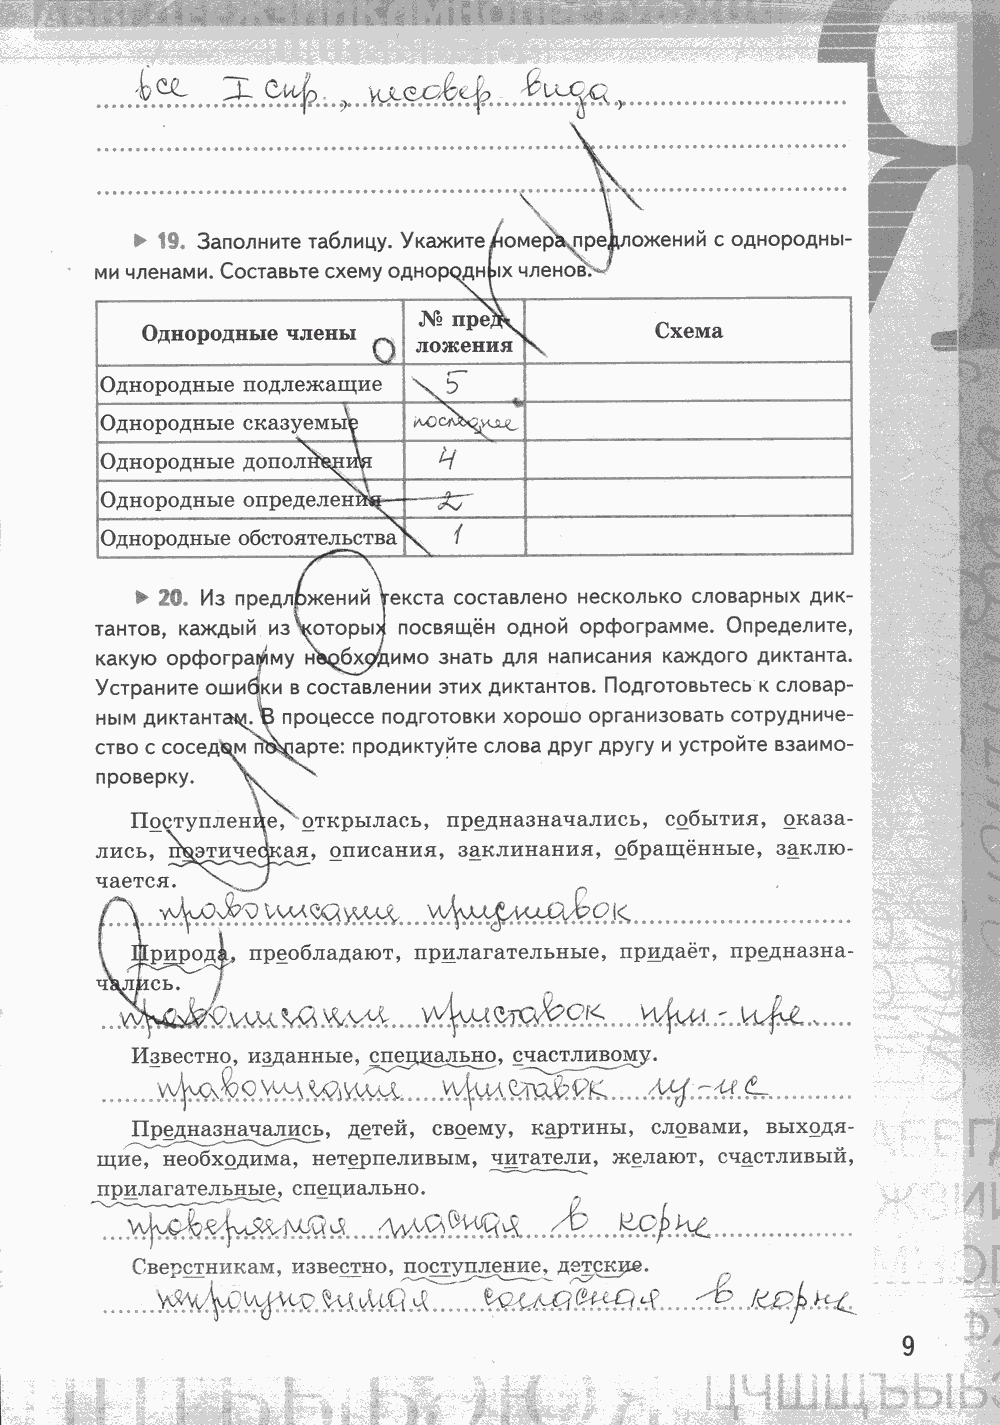 все I спр., несовер вида,
19. Заполните таблицу. Укажите номера предложений с однородны-
ми членами. Составьте схему однородных членов.
Однородные члены № пред- Схема
ложения
Однородные подлежащие 5
Однородные сказуемые последнее
Однородные дополнения 4
Однородные определения 2
Однородные обстоятельства 1
20. Из предложений текста составлено несколько словарных дик-
тантов, каждый из которых посвящён одной орфограмме. Определите,
какую орфограмму необходимо знать для написания каждого диктанта.
Устраните ошибки в составлении этих диктантов. Подготовьтесь к словар-
ным диктантам. В процессе подготовки хорошо организовать сотрудниче-
ство с соседом по парте: продиктуйте слова друг другу и устройте взаимо-
проверку.
Поступление, открылась, предназначались, события, оказа-
лись, поэтическая, описания, заклинания, обращённые, заклю-
чается.
правописание приставок
Природа, преобладают, прилагательные, придаёт, предназна-
чались.
правописание приставок при-пре.
Известно, изданные, специально, счастливому.
правописание приставок из-ис
Предназначались, детей, своему, картины, словами, выходя-
щие, необходима, нетерпеливым, читатели, желают, счастливый,
прилагательные, специально.
проверяемая гласная в корне
Сверстникам, известно, поступление, детские.
непроизносимая согласная в корне
9